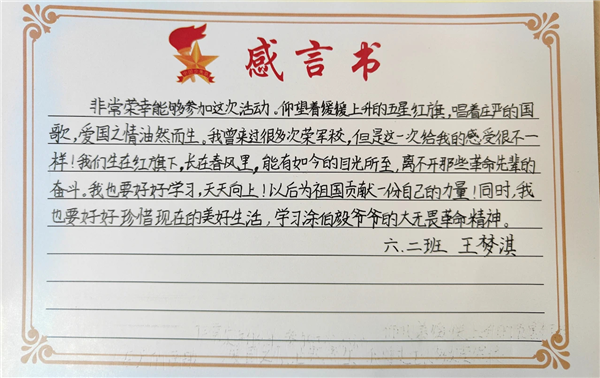 感言书
非常荣幸能够参加这次活动。仰望着缓缓上升的五星红旗，唱着庄严的国
歌，爱国之情油然而生。我曾来过很多次荣军校，但是这一次给我的感受很不一
样！我们生在红旗下，长在春风里，能有如今的目光所至，离不开那些革命先辈的
奋斗。我也要好好学习，天天向上！以后为祖国贡献一份自己的力量！同时，我
也要好好珍惜现在的美好生活，学习涂伯毅爷爷的大无畏革命精神。
六.二班 王梦淇